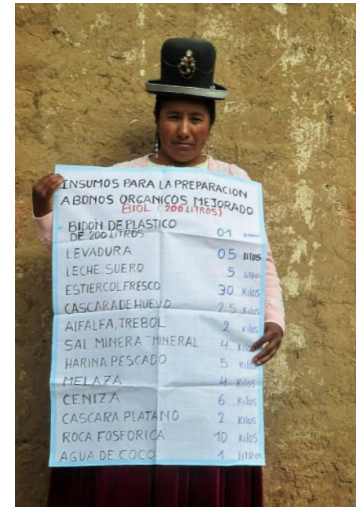 INSUMOS PARA LA PREPARACION
ABONOS ORGANICOS MEJORADO
BIOL (200 LITROS)
BIDON DE PLASTICO
DE 200 LITROS 01
LEVADURA 05
LECHE, SUERO 5
ESTIERCOL FRESCO 30 KILOS
CASCARA DE HUEVO 2.5 KILOS
ALFALFA, TREBOL 2 KILOS
SAL MINERA MINERAL 4 KILOS
HARINA PESCADO 5 KILOS
MELAZA 4 KILOS
CENIZA 6 KILOS
CASCARA PLATANO 2 KILOS
ROCA FOSFORICA 10 KILOS
AGUA DE COCO 1 LITROS